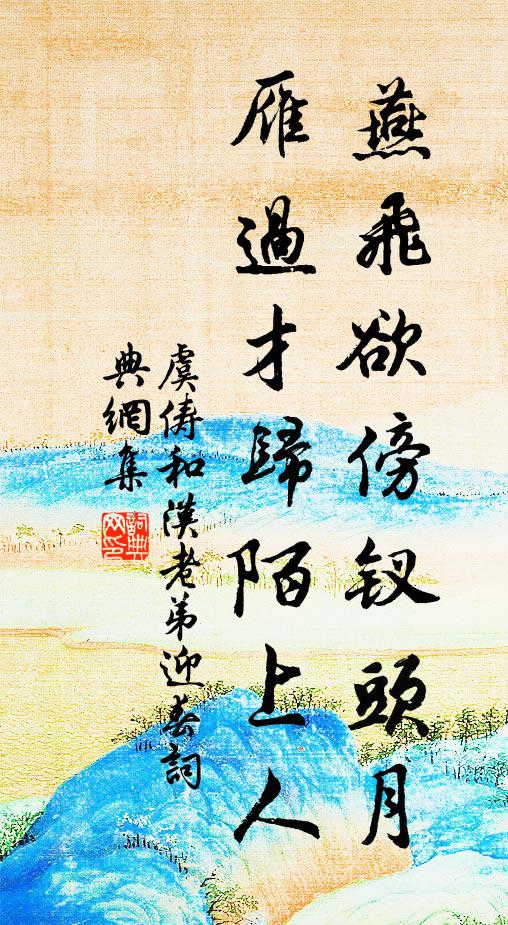 燕飛欲傍钗頭月
雁過才歸陌上人
虞俦和漢老弟迎春詞
典網集
詞典网印